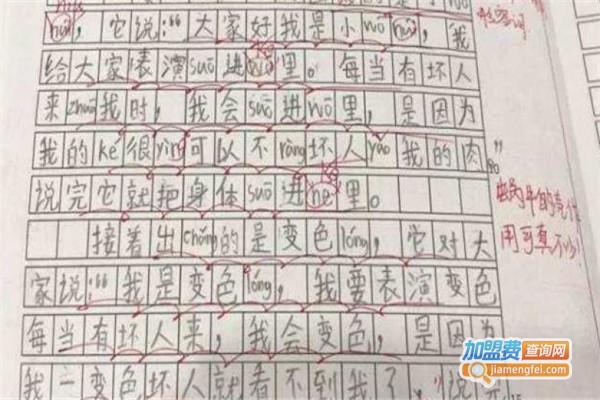 huǐ，它说：“大家好我是小wō huǐ，我
给大家表演suō进wō里。每当有坏人
来zhuō我时，我会suō进wō里，是因为
我的ké很yìng可以不ràng坏人yǎo我的肉。”
说完它就把身体suō进ké里。
接着出chǎng的是变色lóng，它对大
家说：“我是变色lóng，我要表演变色
每当有坏人来，我会变色，是因为
我一变色坏人就看不到我了。”说完
ké
蜗牛的壳作
用可真不少！
加盟费查询网
jiamengfei.com